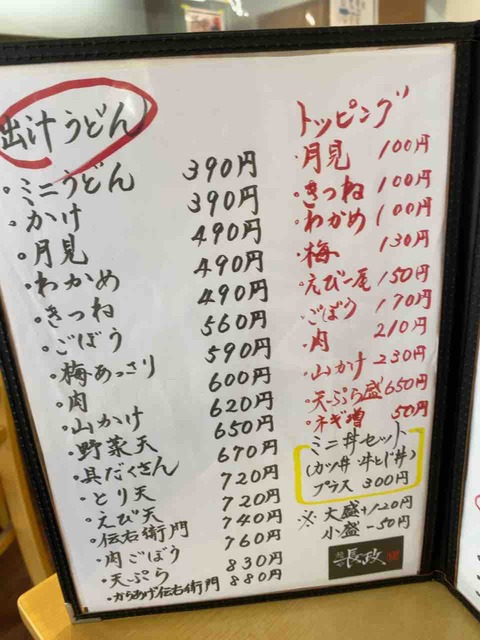 出汁うどん
・ミニうどん 390円
・かけ 390円
・月見 490円
・わかめ 490円
・きつね 490円
・ごぼう 560円
・梅あっさり 590円
・肉 600円
・山かけ 620円
・野菜天 650円
・具だくさん 670円
・とり天 720円
・えび天 720円
・伝右衛門 740円
・肉ごぼう 760円
・天ぷら 830円
・からあげ伝右衛門 880円
トッピング
・月見 100円
・きつね 100円
・わかめ 100円
・梅 130円
・えび一尾 150円
・ごぼう 170円
・肉 210円
・山かけ 230円
・天ぷら盛 650円
・ネギ増 50円
ミニ丼セット
(カツ丼・牛とじ丼)
プラス 300円
※大盛+120円
小盛-50円
長政